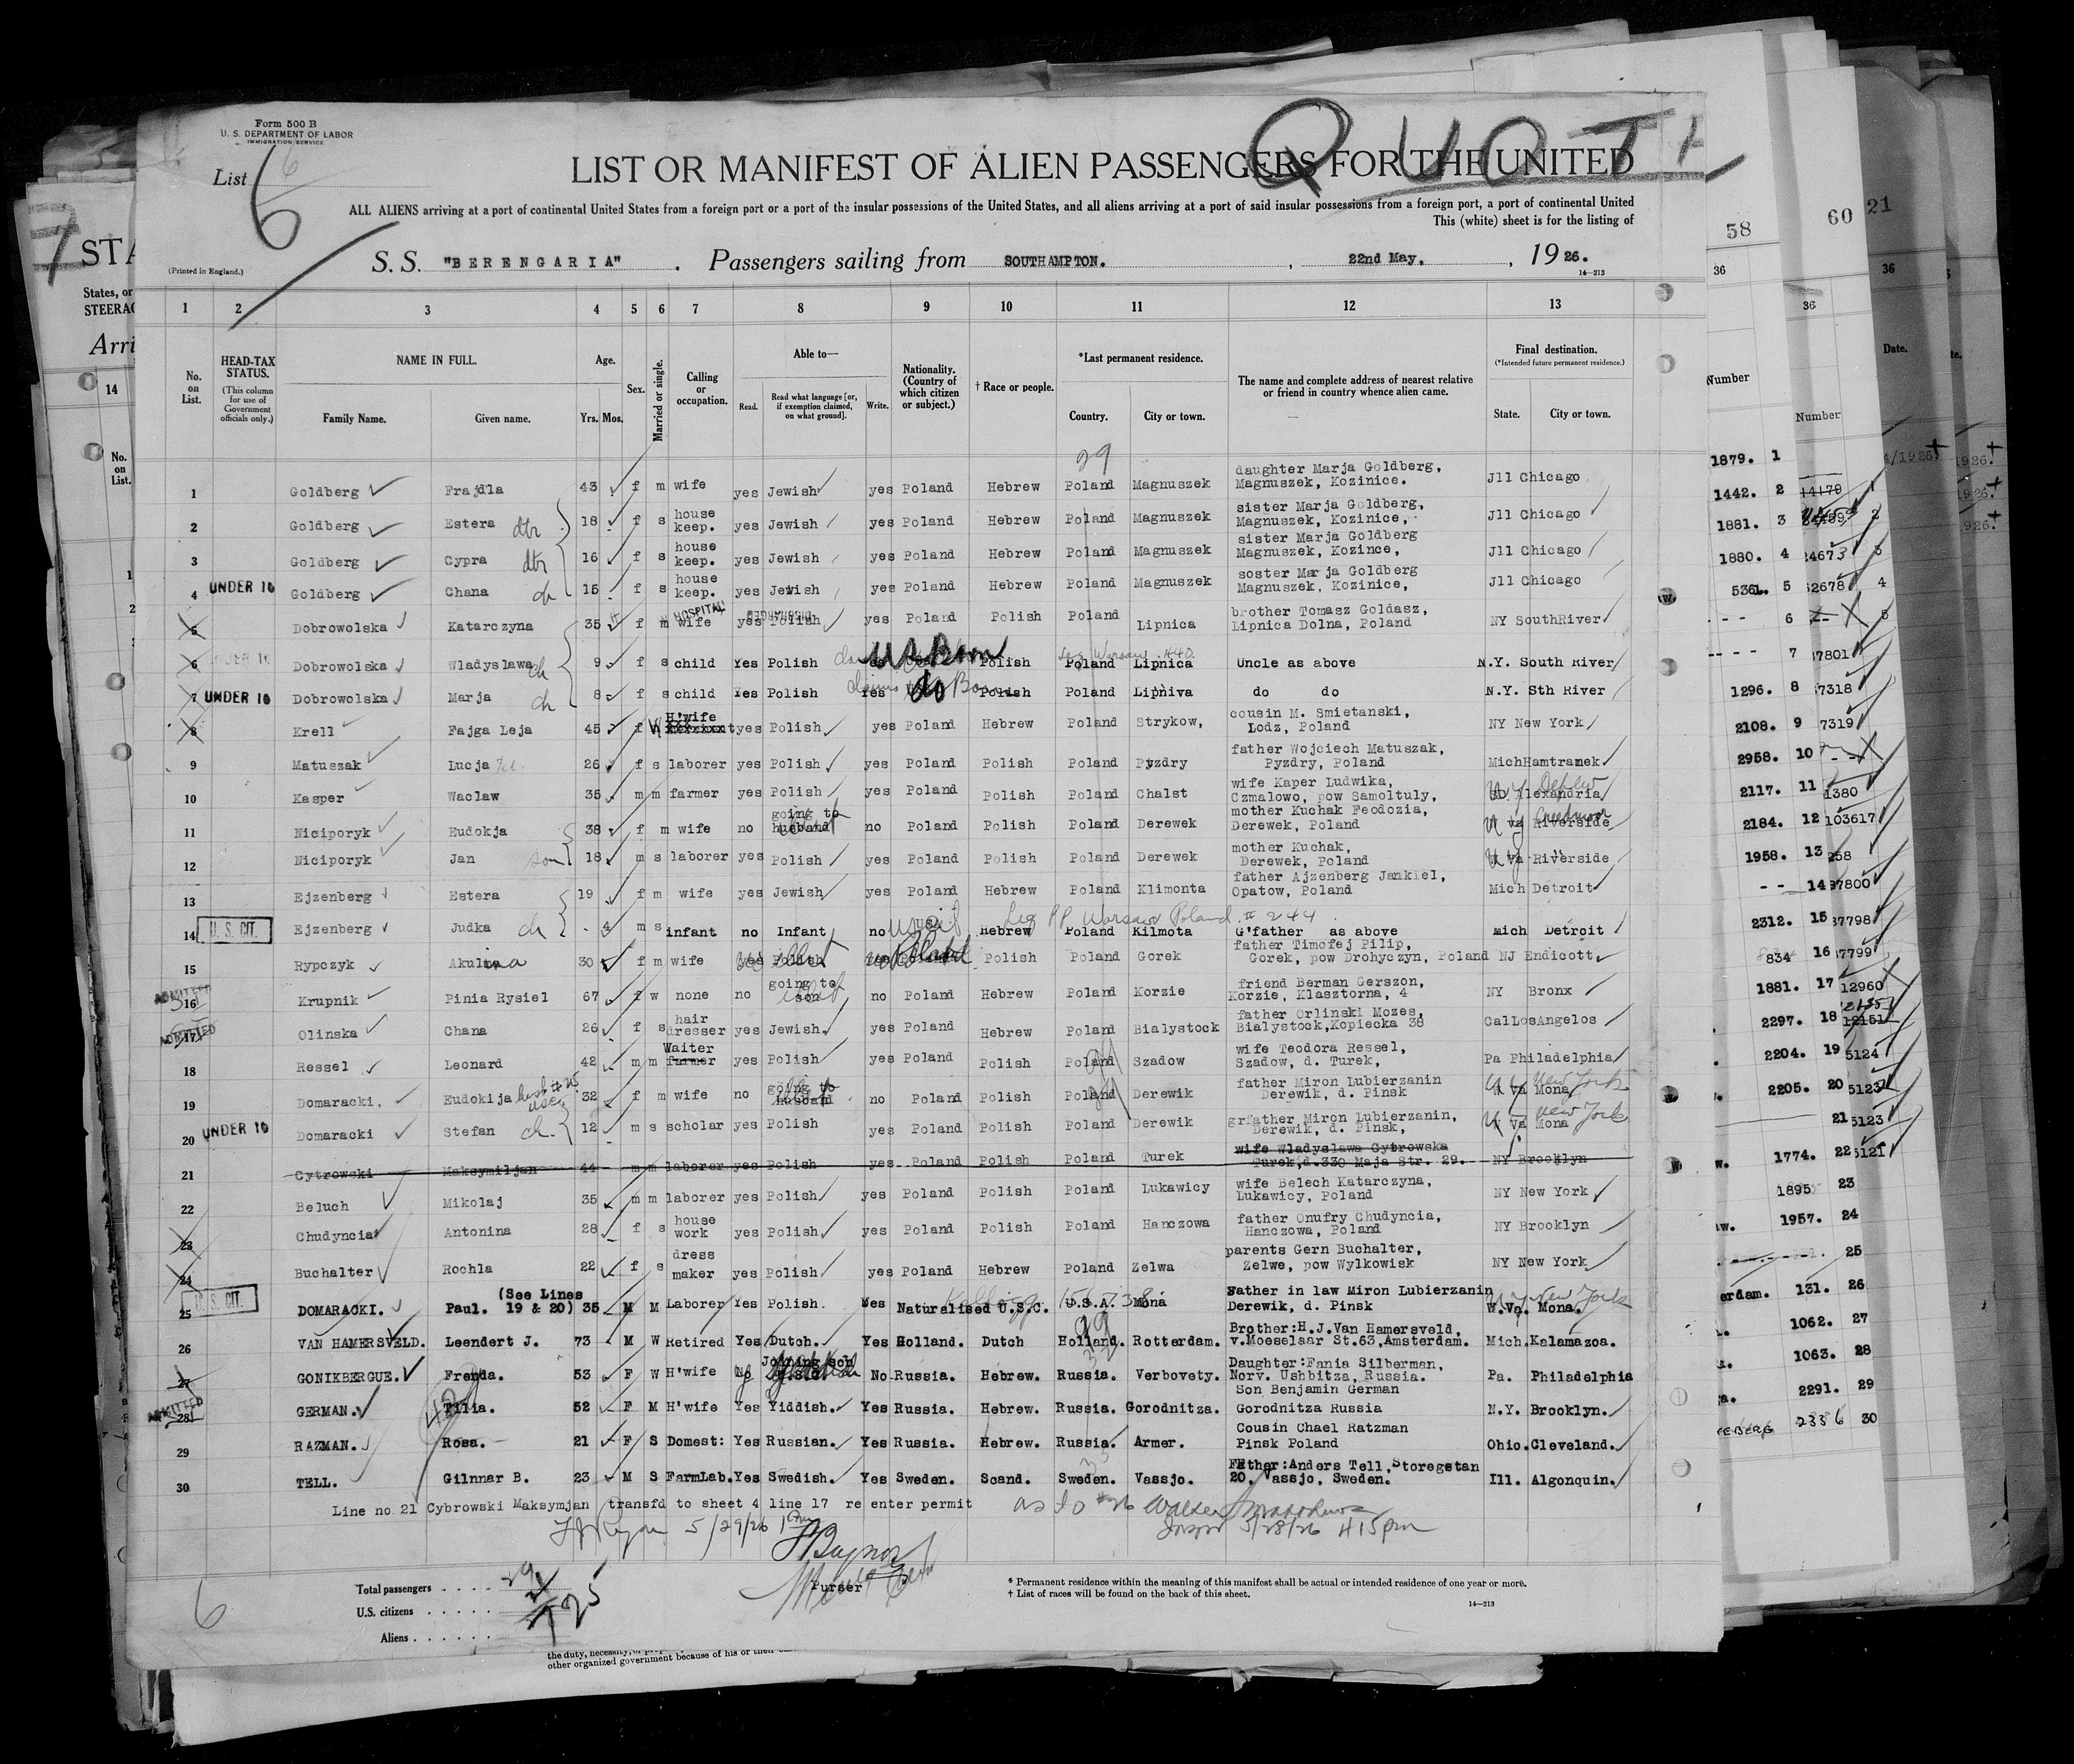 Form 500 B
U. S. DEPARTMENT OF LABOR
IMMIGRATION SERVICE
List 6
6
QUOTA
LIST OR MANIFEST OF ALIEN PASSENGERS FOR THE UNITED
ALL ALIENS arriving at a port of continental United States from a foreign port or a port of the insular possessions of the United States, and all aliens arriving at a port of said insular possessions from a foreign port, a port of continental United
This (white) sheet is for the listing of
(Printed in England.)
S. S. "BERENGARIA" . Passengers sailing from SOUTHAMPTON. , 22nd May. , 19 26.
14—213
1 2 3 4 5 6 7 8 9 10 11 12 13
No. on List.
HEAD-TAX STATUS.
(This column for use of Government officials only.)
NAME IN FULL.
Family Name. Given name.
Age.
Yrs. Mos.
Sex.
Married or single.
Calling or occupation.
Able to—
Read. Read what language [or, if exemption claimed, on what ground]. Write.
Nationality. (Country of which citizen or subject.)
† Race or people.
*Last permanent residence.
Country. City or town.
The name and complete address of nearest relative or friend in country whence alien came.
Final destination.
(*Intended future permanent residence.)
State. City or town.
29
1 Goldberg Frajdla 43 f m wife yes Jewish yes Poland Hebrew Poland Magnuszek daughter Marja Goldberg, Magnuszek, Kozinice. Jll Chicago
2 Goldberg Estera dtr 18 f s house keep. yes Jewish yes Poland Hebrew Poland Magnuszek sister Marja Goldberg, Magnuszek, Kozinice, Jll Chicago
3 Goldberg Cypra dtr 16 f s house keep. yes Jewish yes Poland Hebrew Poland Magnuszek sister Marja Goldberg Magnuszek, Kozince, Jll Chicago
4 UNDER 16 Goldberg Chana ch 15 f s house keep. yes Jewish yes Poland Hebrew Poland Magnuszek soster Marja Goldberg Magnuszek, Kozinice, Jll Chicago
HOSPITAL DISCHARGED
5 Dobrowolska Katarczyna 35 f m wife yes Polish yes Poland Polish Poland Lipnica brother Tomasz Goldasz, Lipnica Dolna, Poland NY SouthRiver
6 UNDER 16 Dobrowolska Wladyslawa ch 9 f s child Yes Polish US Born Polish Poland Lipnica Uncle as above N.Y. South River
7 UNDER 16 Dobrowolska Marja ch 8 f s child Yes Polish Yes do Polish Poland Lipniva do do N.Y. Sth River
8 Krell Fajga Leja 45 f W H'wife yes Polish yes Poland Hebrew Poland Strykow, cousin M. Smietanski, Lodz, Poland NY New York
9 Matuszak Lucja 26 f s laborer yes Polish yes Poland Polish Poland Pyzdry father Wojciech Matuszak, Pyzdry, Poland Mich Hamtramek
10 Kasper Waclaw 35 m m farmer yes Polish yes Poland Polish Poland Chalst wife Kaper Ludwika, Czmalowo, pow Samoltuly, Alexandria N Y Depew
11 Niciporyk Eudokja 38 f m wife no going to husband no Poland Polish Poland Derewek mother Kuchak Feodozia, Derewek, Poland Va Riverside
12 Niciporyk Jan son 18 m s laborer yes Polish yes Poland Polish Poland Derewek mother Kuchak, Derewek, Poland Va Riverside
13 Ejzenberg Estera 19 f m wife yes Jewish yes Poland Hebrew Poland Klimonta father Ajzenberg Jankiel, Opatow, Poland Mich Detroit
Leg PP Warsaw Poland # 244
14 U. S. CIT. Ejzenberg Judka ch - 4 m s infant no Infant no Hebrew Poland Kilmota G'father as above Mich Detroit
15 Rypczyk Akulina 30 f m wife Polish Poland Polish Poland Gorek father Timofej Pilip, Gorek, pow Drohyczyn, Poland NJ Endicott
16 ADMITTED Krupnik Pinia Rysiel 67 f w none no going to son no Poland Hebrew Poland Korzie friend Berman Gerszon, Korzie, Klasztorna, 4 NY Bronx
17 ADMITTED Olinska Chana 26 f s hair dresser yes Jewish. yes Poland Hebrew Poland Bialystock father Orlinski Mozes, Bialystock,Kopiecka 38 Cal LosAngelos
18 Ressel Leonard 42 m m Waiter farmer yes Polish yes Poland Polish Poland Szadow wife Teodora Ressel, Szadow, d. Turek, Pa Philadelphia
19 Domaracki. Eudokija 32 f m wife no going to husband no Poland Polish Poland Derewik father Miron Lubierzanin Derewik, d. Pinsk Va Mona New York
20 UNDER 16 Domaracki Stefan ch. 12 m s scholar yes Polish yes Poland Polish Poland Derewik grfather Miron Lubierzanin, Derewik, d. Pinsk, Va Mona New York
21 Cytrowski Maksymiljan 44 m m laborer yes Polish yes Poland Polish Poland Turek wife Wladyslawa Cytrowska Turek,d.330 Maja Str. 29. NY Brooklyn
22 Beluch Mikolaj 35 m m laborer yes Polish yes Poland Polish Poland Lukawicy wife Belech Katarczyna, Lukawicy, Poland NY New York
23 Chudyncia Antonina 28 f s house work yes Polish yes Poland Polish Poland Hanczowa father Onufry Chudyncia, Hanczowa, Poland NY Brooklyn
24 Buchalter Rochla 22 f s dress maker yes Polish yes Poland Hebrew Poland Zelwa parents Gern Buchalter, Zelwe, pow Wylkowisk NY New York
25 U. S. CIT. DOMARACKI. Paul. (See Lines 19 & 20) 35 M M Laborer Yes Polish. Yes Naturalised U.S.C. U.S.A. Mona Father in law Miron Lubierzanin Derewik, d. Pinsk W.Va. Mona. New York
26 VAN HAMERSVELD. Leendert J. 73 M W Retired Yes Dutch. Yes Holland. Dutch Holland. Rotterdam. Brother:H.J.Van Hamersveld, v.Moeselaar St.63,Amsterdam. Mich. Kalamazoa.
27 GONIKBERGUE. Frenda. 53 F W H'wife No Joining son No Russia. Hebrew. Russia. Verbovety. Daughter:Fania Silberman, Norv. Ushbitza, Russia. Pa. Philadelphia
28 ADMITTED GERMAN. Tilia. 52 F M H'wife Yes Yiddish. Yes Russia. Hebrew. Russia. Gorodnitza. Son Benjamin German Gorodnitza Russia N.Y. Brooklyn.
29 RAZMAN. Rosa. 21 F S Domest: Yes Russian. Yes Russia. Hebrew. Russia. Armer. Cousin Chael Ratzman Pinsk Poland Ohio. Cleveland.
30 TELL. Gilnnar B. 23 M S FarmLab. Yes Swedish. Yes Sweden. Scand. Sweden. Vassjo. Father:Anders Tell, Storegatan 20, Vassjo, Sweden. Ill. Algonquin.
Line no. 21 Cybrowski Maksymjan transfd to sheet 4 line 17 re enter permit
as to #26
5/29/26
5/28/26 415pm
Purser
Total passengers . . . .
U.S. citizens . . . . .
Aliens . . . . . .
25
6
* Permanent residence within the meaning of this manifest shall be actual or intended residence of one year or more.
† List of races will be found on the back of this sheet.
14—213
7
STA
States, or
STEERAG
Arri
14
No. on List.
58
60
21
36
36
36
Number
Number
Date.
te.
1879. 1
1442. 2 14170
1881. 3
1880. 4 24673
5361. 5 62678
- - - 6
- - - - 7 37801
1296. 8 7318
2108. 9 7319
2958. 10
2117. 11 1380
2184. 12 103617
1958. 13 258
- - 14 37800
2312. 15 37798
834 16 37799
1881. 17 12960
2297. 18 12151
2204. 19 5124
2205. 20 5123
21 5123
1774. 22 5121
1895 23
1957. 24
25
erdam. 131. 26
1062. 27
1063. 28
2291. 29
2336 30
other organized government because of his or their